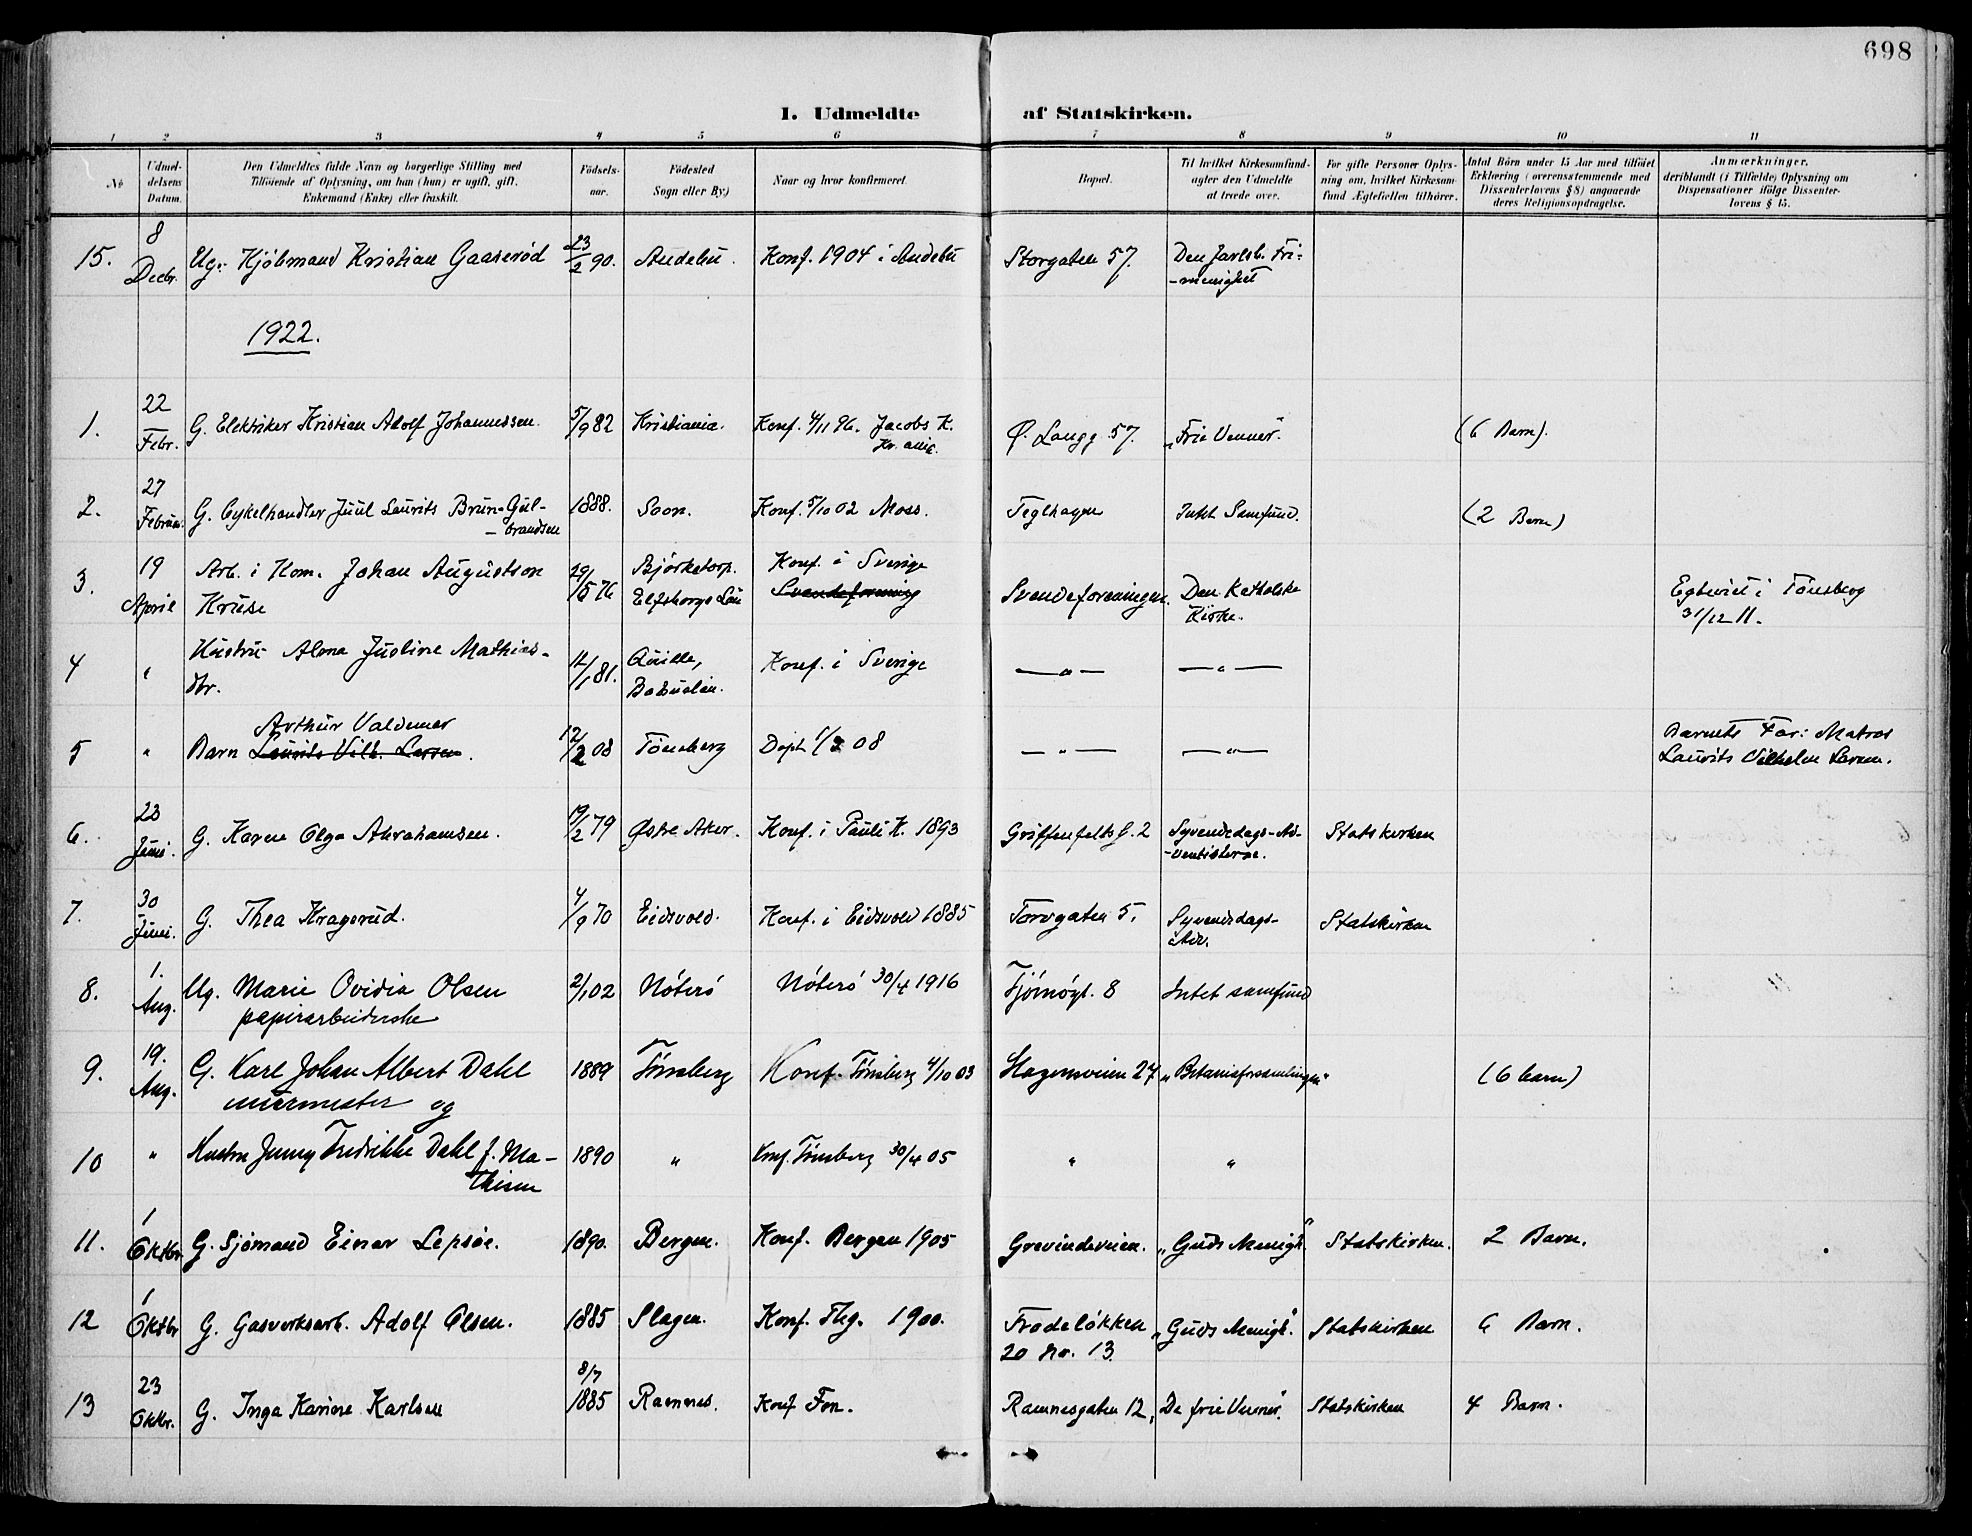 698
I. Udmeldte af Statskirken.
1 2 3 4 5 6 7 8 9 10 11
№
Udmeldelsens Datum.
Den Udmeldtes fulde Navn og borgerlige Stilling med
Tilføiende af Oplysning, om han (hun) er ugift, gift,
Enkemand (Enke) eller fraskilt.
Fødselsaar.
Fødested
Sogn eller By)
Naar og hvor konfirmeret.
Bopæl.
Til hvilket Kirkesamfund-
agter den Udmeldte
at træde over.
For gifte Personer Oplys-
ning om, hvilket Kirkesam-
fund Ægtefællen tilhører.
Antal Börn under 15 Aar med tilføiet
Erklæring (overensstemmende med
Dissenterlovens § 8) angaaende
deres Religionsopdragelse.
Anmærkninger.
deriblandt (i Tilfælde) Oplysning om
Dispensationer ifølge Dissenter-
lovens § 15.
15. 8 Decbr. Ug. Kjøbmand Kristian Gaaserød 23/2 90. Andebu. Konf. 1904 i Andebu Storgaten 57. Den Jarlsb. Fri-
-menighet
1922.
1. 22 Febr. G. Elektriker Kristian Adolf Johannessen. 5/9 82 Kristiania. Konf. 4/11 96. Jacobs K. Ø. Langg. 57. „Frie Venner". (6 Barn).
Kr.ania.
2. 27 Februar. G. Cykelhandler Juul Laurits Brun-Gul- 1888. Soon. Konf. 5/10 02 Moss. Teglhagen Intet Samfund. (2 Barn)
-brandsen
3. 19 April Arb. i Kom. Johan Augustson 29/5 76 Björketorp. Konf. i Sverige Svendeforeningen. Den Katholske Egteviet i Tönsberg
Kruse Elfsborgs Län Svendeforening Kirke. 31/12 11.
4 " Hustru Alma Justine Mathias- 12/1 81. Quille, Konf. i Sverige — " — — " —
dtr. Bohuslän.
Arthur Valdemar
5 " Barn Laurits Vilh. Larsen. 12/2 08 Tönsberg Døpt 1/3 08 — " — — " — Barnets Far: Matros
Laurits Vilhelm Larsen.
6. 23 Juni. G. Karen Olga Abrahamsen. 19/2 79 Østre Aker. Konf. i Pauli K. 1893 Griffenfelts G. 2 Syvendedags-Ad- Statskirken
-ventisterne.
7. 30 Juni. G. Thea Kragerud. 4/9 70 Eidsvold. Konf. i Eidsvold 1885 Torvgaten 5. Syvendedags- Statskirken
Adv.
8. 1. Aug. Ug. Marie Ovidia Olsen 2/1 02 Nøterø Nøterø 30/4 1916 Tjömögt. 8 Intet samfund
papirarbeiderske
9. 19. Aug. G. Karl Johan Albert Dahl 1889 Tønsberg Konf. Tønsberg 4/10 03 Slagensveien 27 „Betaniaforsamlingen" (6 barn)
murmester og
10 " Hustru Jenny Fredrikke Dahl f. Ma- 1890 " Konf. Tønsberg 30/4 05 " "
thisen
11. 1 Oktbr. G. Sjømand Einar Lepsøe. 1890. Bergen. Konf. Bergen 1905 Grevindeveien. „Guds Menigh." Statskirken. 2 Barn.
12 1 Oktbr G. Gasverksarb. Adolf Olsen. 1885 Slagen. Konf. Tbg. 1900. Frodeløkken „Guds Menigh." Statskirken 6 Barn.
20 Nr. 13.
13 23 Oktbr. G. Inga Karine Karlsen 8/7 1885 Ramnes. Konf Fon. Ramnesgaten 12. „De frie Venner". Statskirken 4 Barn.